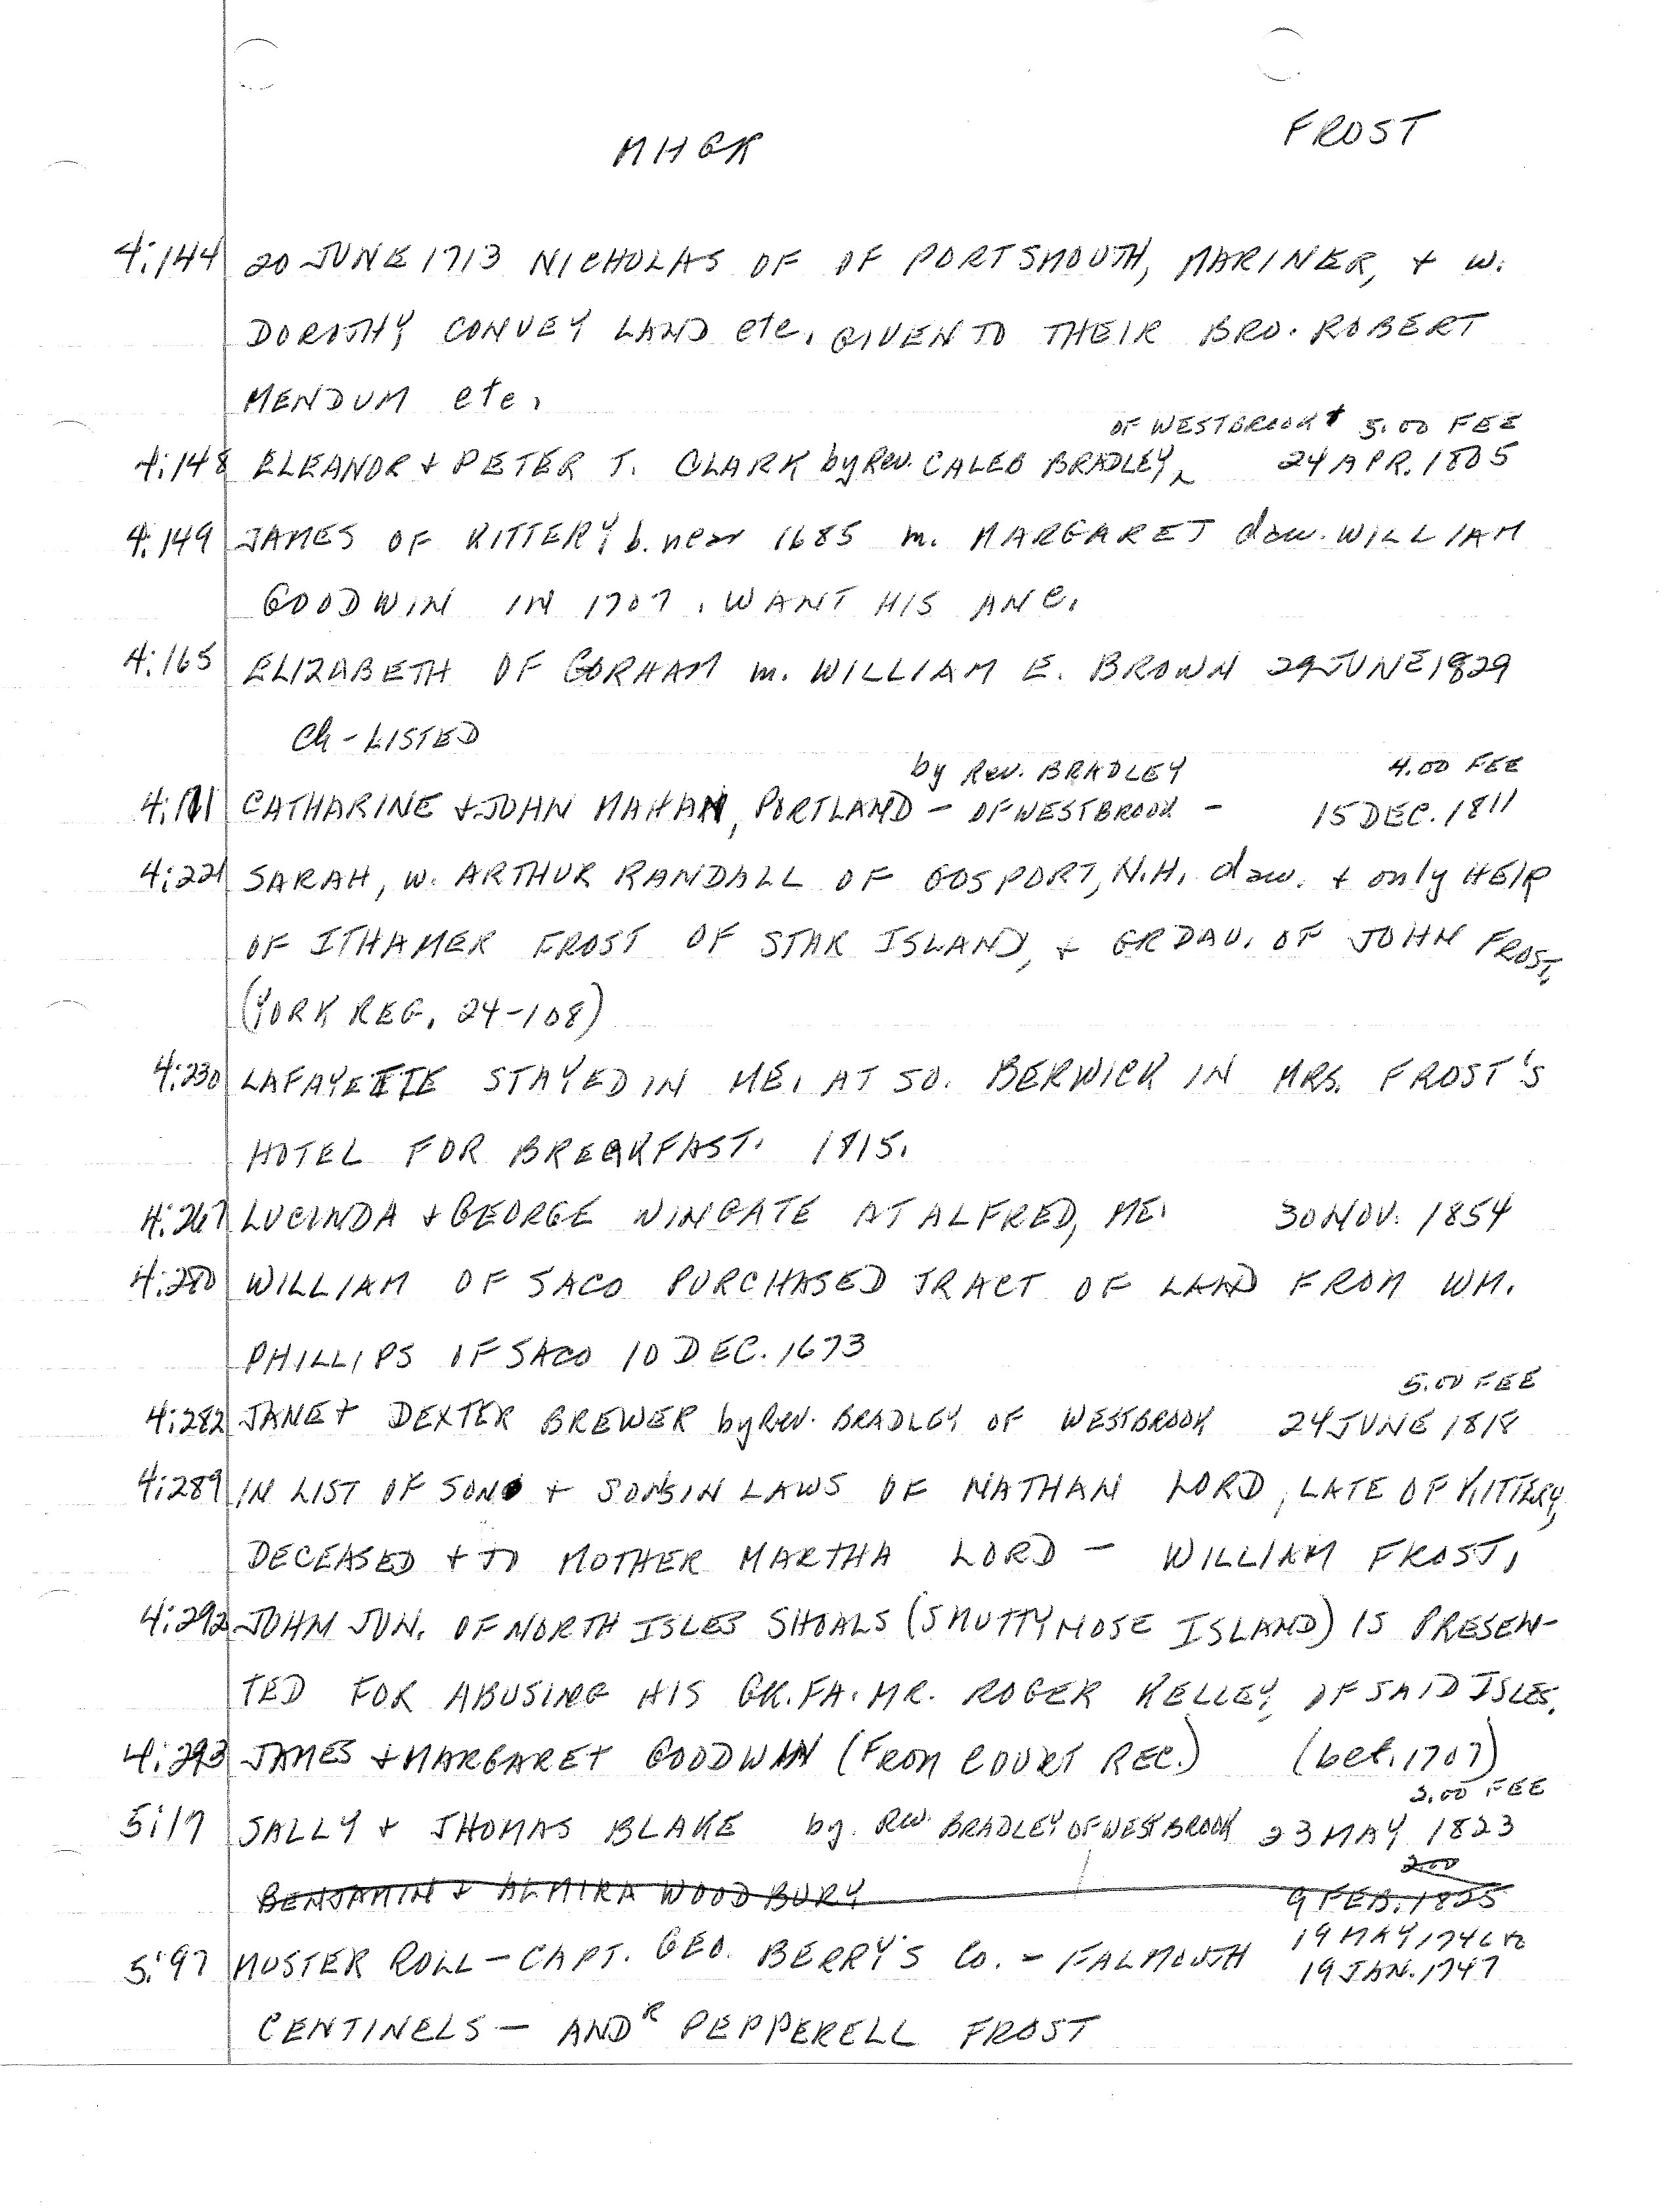 MHGR
FROST
4:144 20 JUNE 1713 NICHOLAS OF OF PORTSMOUTH, MARINER, + W.
DOROTHY CONVEY LAND etc. GIVEN TO THEIR BRO. ROBERT
MENDUM etc.
OF WESTBROOK + 5.00 FEE
4:148 ELEANOR + PETER T. CLARK by Rev. CALEB BRADLEY, 24 APR. 1805
4:149 JAMES OF KITTERY b. near 1685 m. MARGARET dau. WILLIAM
GOODWIN IN 1707. WANT HIS ANC.
4:165 ELIZABETH OF GORHAM m. WILLIAM E. BROWN 29 JUNE 1829
Ch - LISTED
by Rev. BRADLEY 4.00 FEE
CATHARINE + JOHN MAHAN, PORTLAND - OF WESTBROOK - 15 DEC. 1811
4:221 SARAH, W. ARTHUR RANDALL OF GOSPORT, N.H. dau. + only HEIR
OF ITHAMER FROST OF STAR ISLAND, + GRDAU. OF JOHN FROST.
(YORK REG. 24-108)
4:230 LAFAYETTE STAYED IN ME. AT SO. BERWICK IN MRS. FROST'S
HOTEL FOR BREAKFAST. 1815.
4:267 LUCINDA + GEORGE WINGATE AT ALFRED, ME. 30 NOV. 1854
4:280 WILLIAM OF SACO PURCHASED TRACT OF LAND FROM WM.
PHILLIPS OF SACO 10 DEC. 1673
5.00 FEE
4:282 JANE + DEXTER BREWER by Rev. BRADLEY OF WESTBROOK 24 JUNE 1818
4:289 IN LIST OF SONS + SONSIN LAWS OF NATHAN LORD, LATE OF KITTERY,
DECEASED + TO MOTHER MARTHA LORD - WILLIAM FROST.
4:292 JOHN JUN. OF NORTH ISLES SHOALS (SMUTTYNOSE ISLAND) IS PRESEN-
TED FOR ABUSING HIS GR.FA. MR. ROGER KELLEY, OF SAID ISLES.
4:293 JAMES + MARGARET GOODWIN (FROM COURT REC.) (bef. 1707)
2.00 FEE
5:17 SALLY + THOMAS BLAKE by Rev. BRADLEY OF WESTBROOK 23 MAY 1823
2.00
BENJAMIN + ALMIRA WOODBURY 9 FEB. 1825
19 MAY 1746 to
5:97 MUSTER ROLL - CAPT. GEO. BERRY'S Co. - FALMOUTH 19 JAN. 1747
CENTINELS - ANDR PEPPERELL FROST